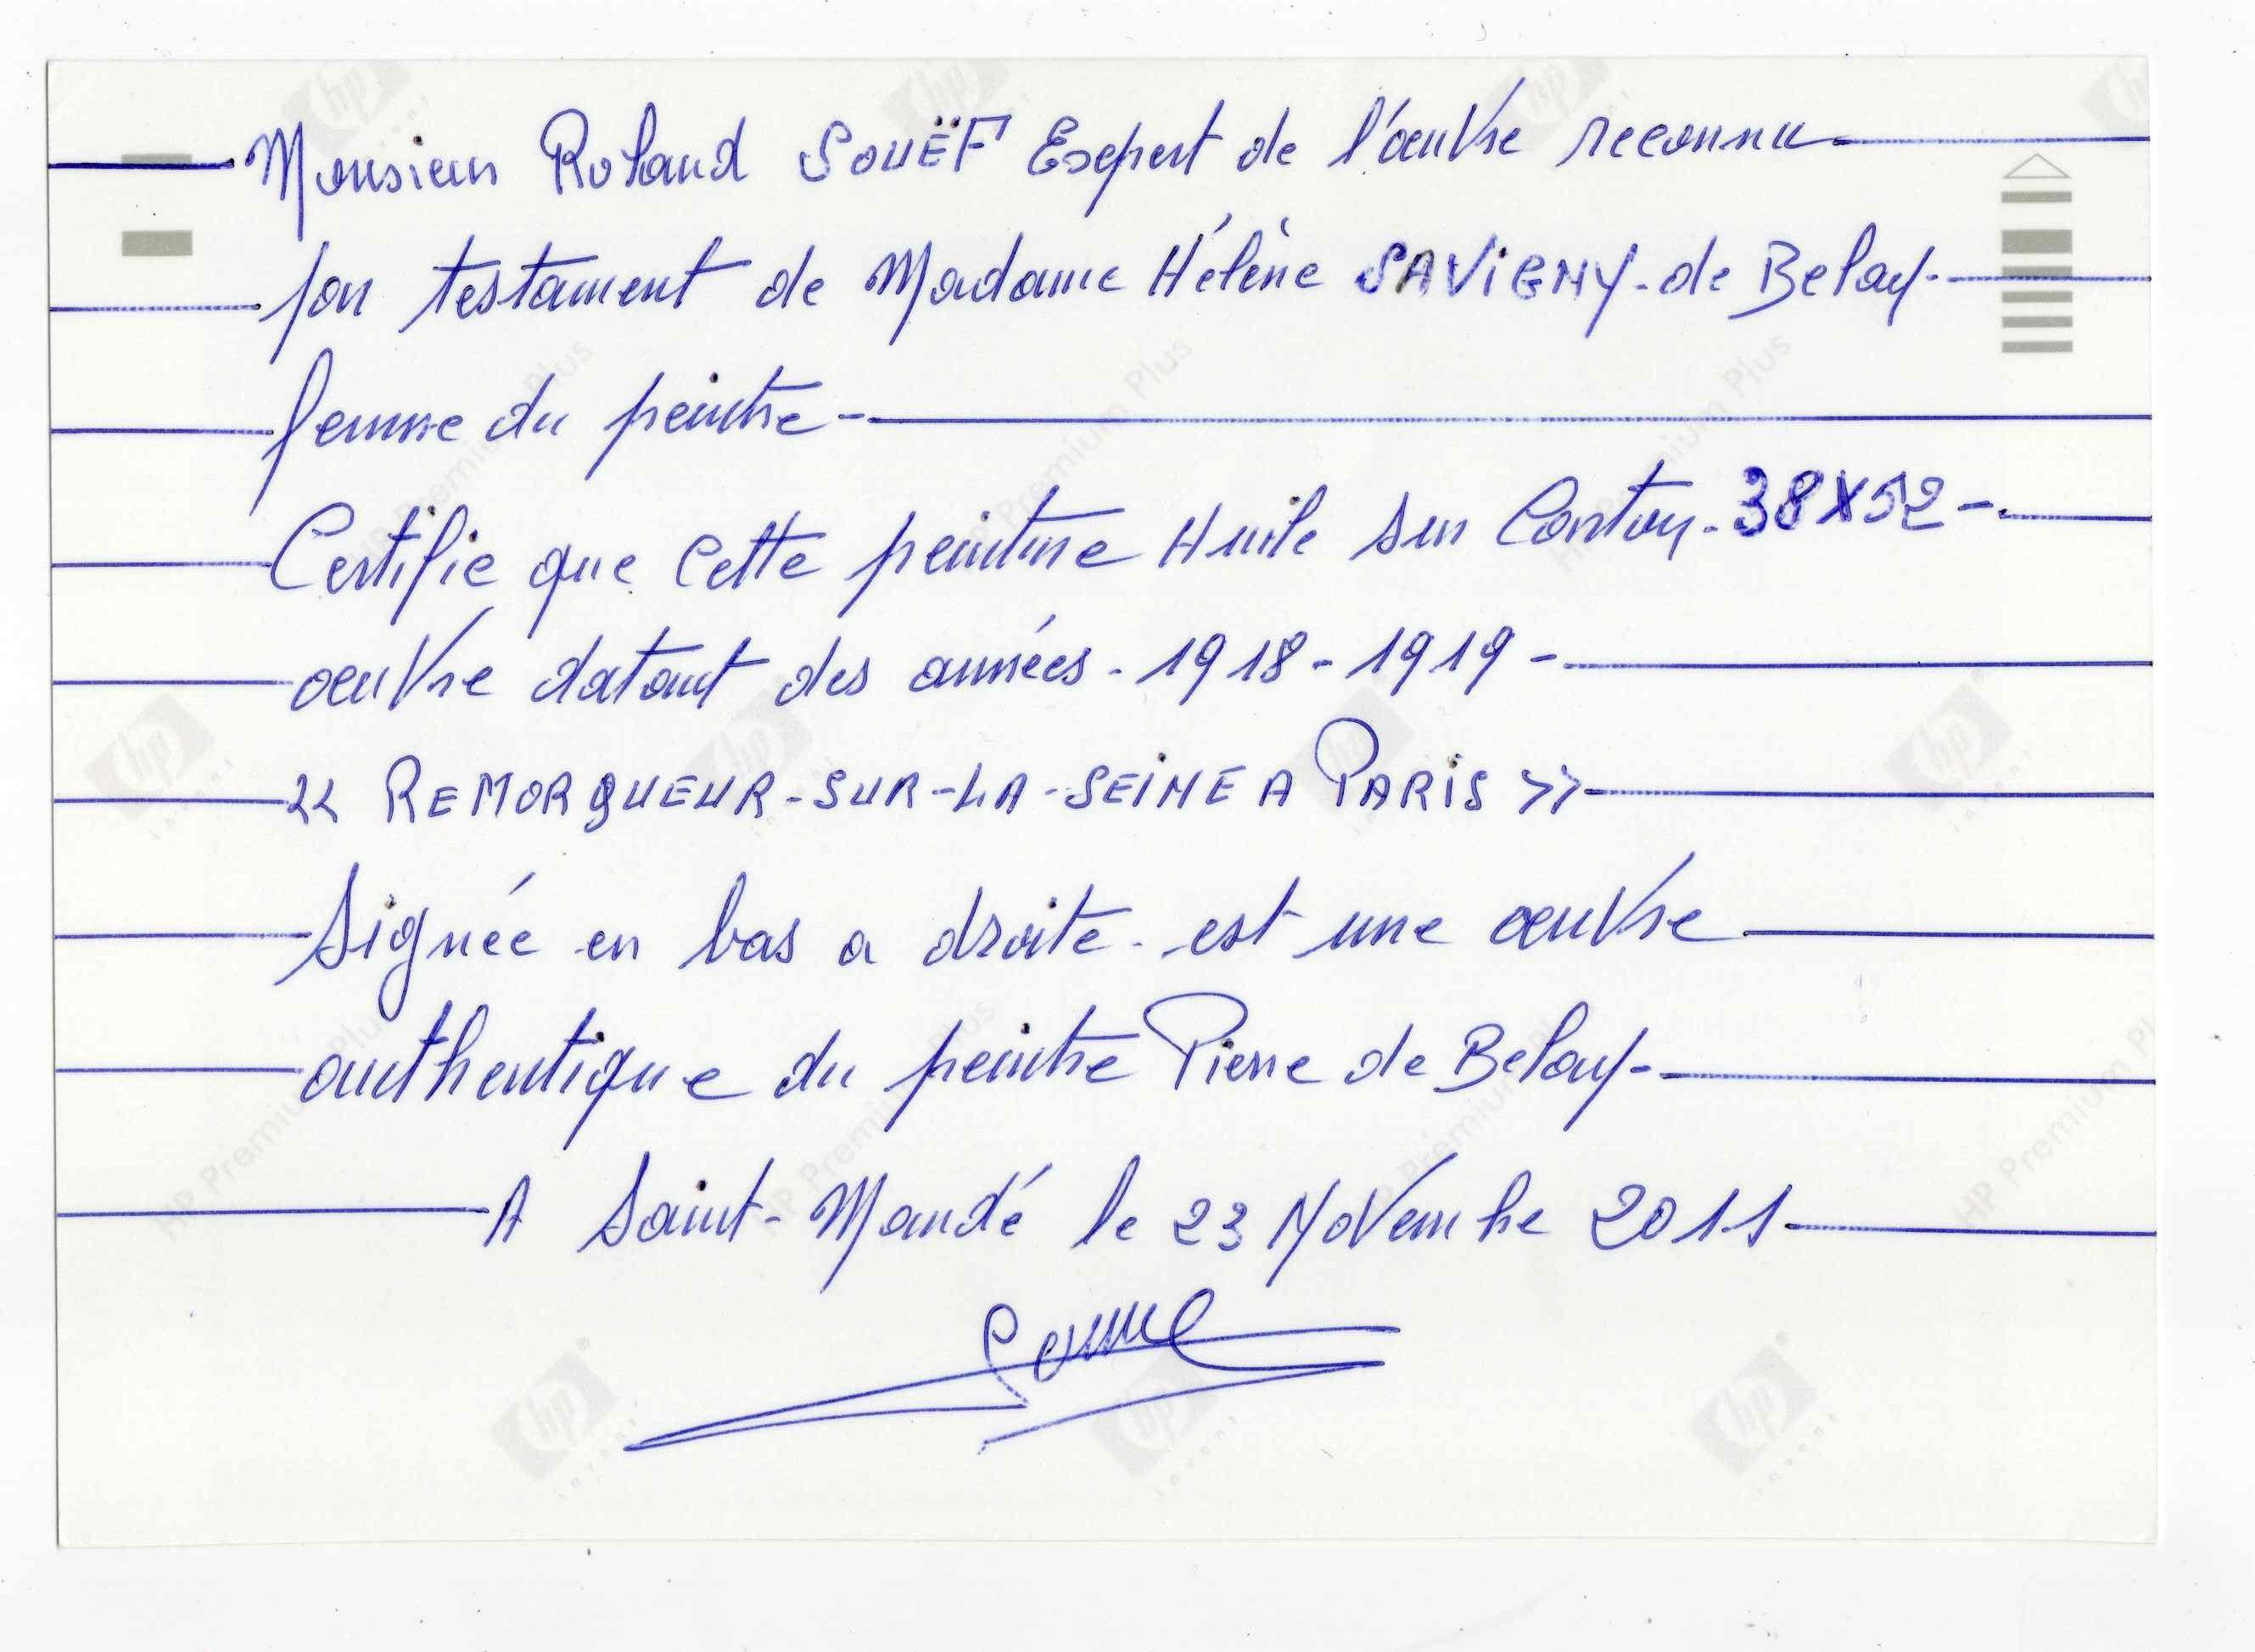 Monsieur Roland SOUËF Expert de l'œuvre reconnu
par testament de Madame Hélène SAVIGNY-de Belay-
femme du peintre-
Certifie que cette peinture Huile sur Carton-38X52-
œuvre datant des années-1918-1919-
<< REMORQUEUR-SUR-LA-SEINE A PARIS >>
Signée en bas a droite-est une œuvre
authentique du peintre Pierre de Belay-
A Saint-Mandé le 23 Novembre 2011-